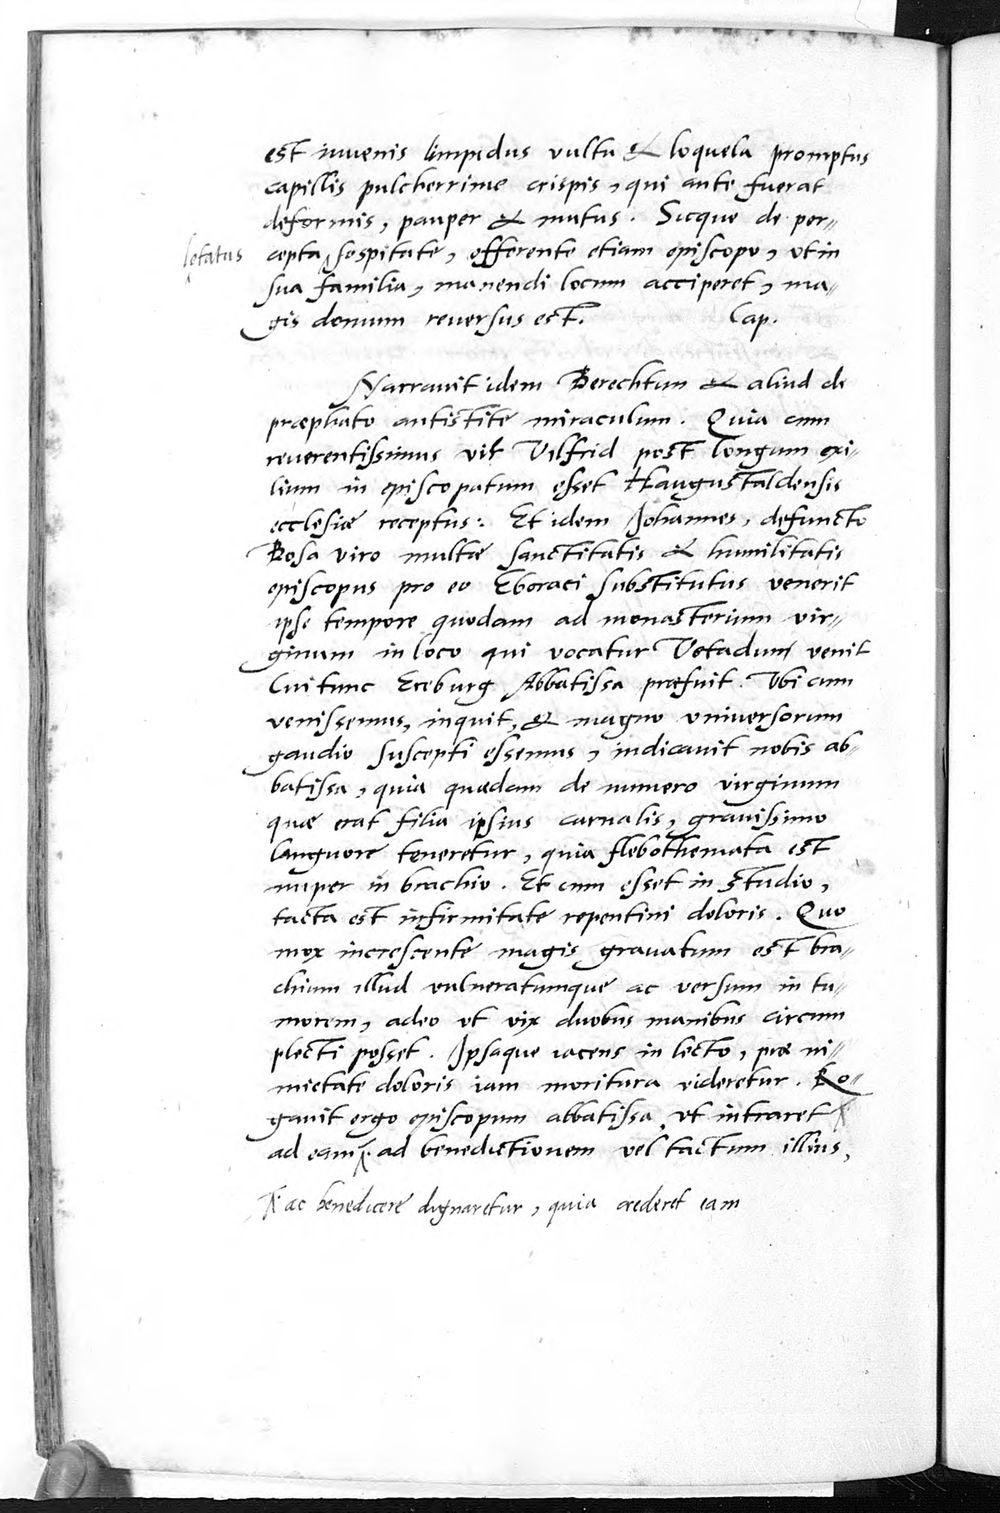 est iuuenis limpidus vultu & loquela promptus
capillis pulcherrime crispis, qui ante fuerat
deformis, pauper & mutus. Sicque de per-
letatus
cepta sospitate, offerente etiam episcopo, vt in
sua familia, manendi locum acciperet, ma-
gis domum reuersus est. Cap.
Narrauit idem Berechtun & aliud de
præphato antistite miraculum. Quia cum
reuerentissimus vir Vilfrid post longum exi-
lium in episcopatum esset Haugustaldensis
ecclesiæ receptus: Et idem Johannes, defuncto
Bosa viro multæ sanctitatis & humilitatis
episcopus pro eo Eboraci substitutus venerit
ipse tempore quodam ad monasterium vir-
ginum in loco qui vocatur Vetadum venit
Cui tunc Ereburg Abbatissa præfuit. Vbi cum
venissemus, inquit, & magno vniuersorum
gaudio suscepti essemus, indicauit nobis ab-
batissa, quia quædam de numero virginum
quæ erat filia ipsius carnalis, grauissimo
languore teneretur, quia flebothemata est
nuper in brachio. Et cum esset in studio,
tacta est infirmitate repentini doloris. Quo
mox increscente magis grauatum est bra-
chium illud vulneratumque ac versum in tu-
morem, adeo vt vix duobus manibus circum
plecti posset. Ipsaque iacens in lecto, præ ni-
mietate doloris iam moritura videretur. Ro-
gauit ergo episcopum abbatissa, vt intraret
ad eam. ad benedictionem vel tactum illius,
ac benedicere dignaretur, quia crederet eam